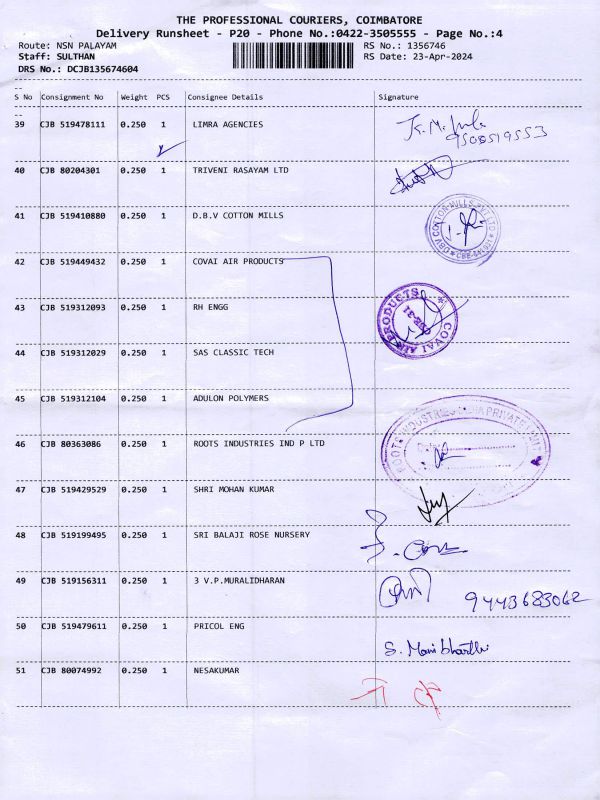 THE PROFESSIONAL COURIERS, COIMBATORE
Delivery Runsheet - P20 - Phone No.:0422-3505555 - Page No.:4
Route: NSN PALAYAM RS No.: 1356746
Staff: SULTHAN RS Date: 23-Apr-2024
DRS No.: DCJB135674604
S No Consignment No Weight PCS Consignee Details Signature
39 CJB 519478111 0.250 1 LIMRA AGENCIES
9508519553
40 CJB 80204301 0.250 1 TRIVENI RASAYAM LTD
41 CJB 519410880 0.250 1 D.B.V COTTON MILLS
42 CJB 519449432 0.250 1 COVAI AIR PRODUCTS
43 CJB 519312093 0.250 1 RH ENGG
COVAI AIR PRODUCTS
44 CJB 519312029 0.250 1 SAS CLASSIC TECH
45 CJB 519312104 0.250 1 ADULON POLYMERS
46 CJB 80363086 0.250 1 ROOTS INDUSTRIES IND P LTD
47 CJB 519429529 0.250 1 SHRI MOHAN KUMAR
48 CJB 519199495 0.250 1 SRI BALAJI ROSE NURSERY
49 CJB 519156311 0.250 1 3 V.P.MURALIDHARAN
9443683062
50 CJB 519479611 0.250 1 PRICOL ENG
S. Manibharathi
51 CJB 80074992 0.250 1 NESAKUMAR